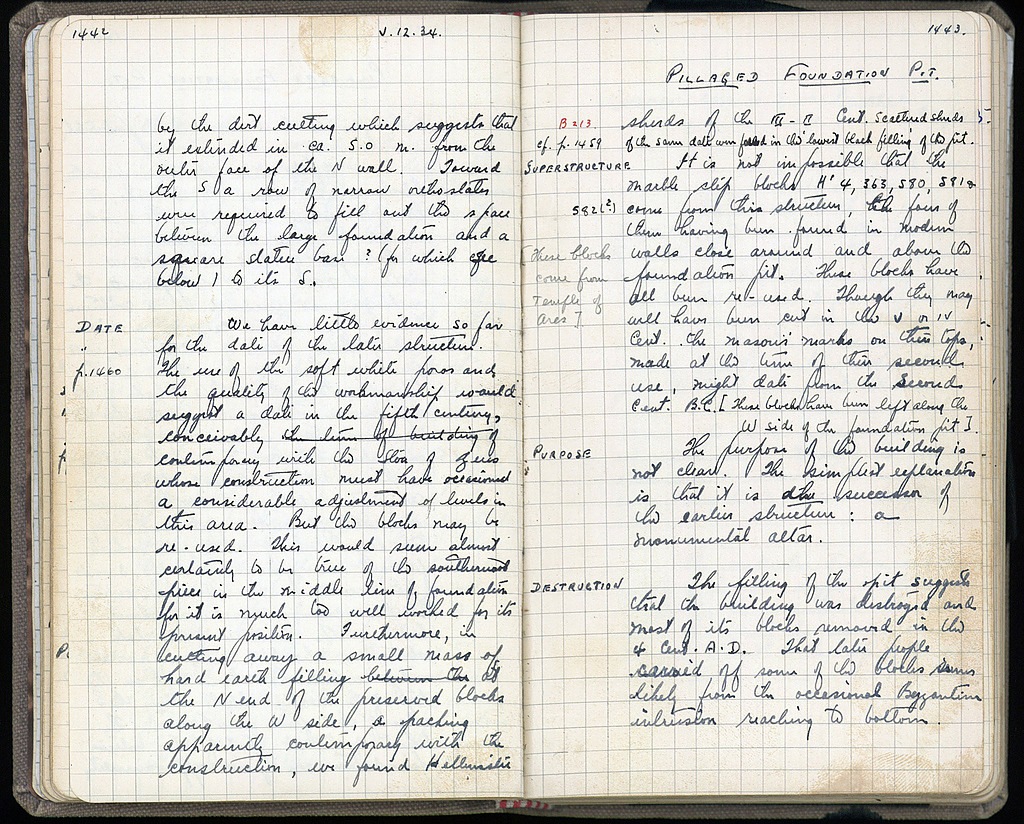 1442
V.12.34.
by the dirt cutting which suggests that
it extended in ca. 5.0 m. from the
outer face of the N wall. Toward
the S a row of narrow orthostates
were required to fill out the space
between the large foundation and a
square statue base? (for which see
below) to its S.
DATE
p.1460
We have little evidence so far
for the date of the later structure.
The use of the soft white poros and
the quality of the workmanship would
suggest a date in the fifth century,
conceivably the time of building of
contemporary with the Stoa of Zeus
whose construction must have occasioned
a considerable adjustment of levels in
this area. But the blocks may be
re-used. This would seem almost
certainly to be true of the southernmost
piece in the middle line of foundation
for it is much too well worked for its
present position. Furthermore, in
cutting away a small mass of
hard earth filling between the at
the N end of the preserved blocks
along the W side, a packing
apparently contemporary with the
construction, we found Hellenistic
1443.
PILLAGED FOUNDATION PIT.
B 213
cf. p. 1459
sherds of the III-II Cent. Scattered sherds
of the same date were found in the lowest black filling of the pit.
SUPERSTRUCTURE
It is not impossible that the
marble step blocks H' 4, 363, 580, 581 &
582(?) come from this structure, the four of
them having been found in modern
walls close around and above the
foundation pit. These blocks have
all been re-used. Though they may
well have been cut in the V or IV
Cent. the mason's marks on their tops,
made at the time of their second
use, might date from the second
Cent. B.C. [These blocks have been left along the
W side of the foundation pit].
[These blocks
come from
Temple of
Ares]
PURPOSE
The purpose of the building is
not clear. The simplest explanation
is that it is the successor of
the earlier structure: a
monumental altar.
DESTRUCTION
The filling of the pit suggests
that the building was destroyed and
most of its blocks removed in the
4 Cent. A.D. That later people
carried off some of the blocks seems
likely from the occasional Byzantine
intrusion reaching to bottom.